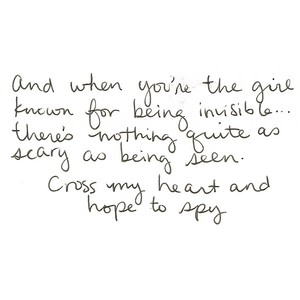 and when you're the girl
known for being invisible...
there's nothing quite as
scary as being seen.
Cross my heart and
hope to spy